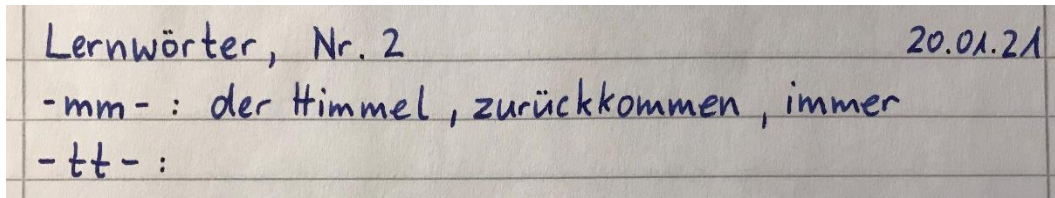 Lernwörter, Nr. 2 20.01.21
-mm- : der Himmel, zurückkommen, immer
-tt- :